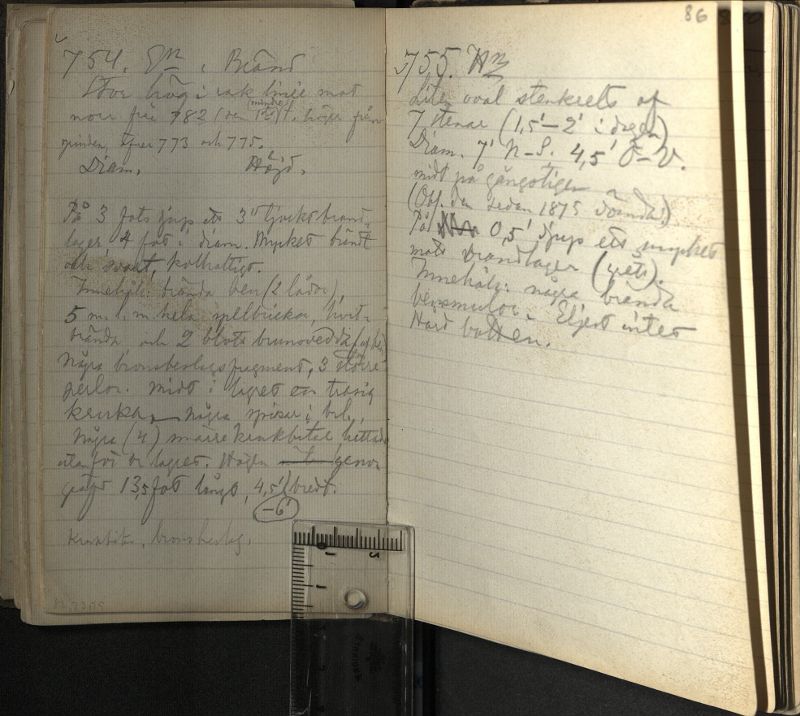 754. Bränd
Stor hög i rak linie mot
norr från 782 (den mindre) t. höger från
grinden, efter 773 och 775.
Diam. Höjd.
På 3 fots djup ett 3" tjockt brand-
lager 4 fot i diam. Mycket bränt
och svart, kolhaltigt.
Innehöll: brända ben (2 lådor),
5 m. l. m. hela spelbrickor, hvit-
brända och 2 blott brunsvedda
några bronsbeslagsfragment, 3 större
perlor. Midt i lagret en trasig
kruka. Några spisar i bål.
Några (4) större krukbitar hittades
utanför br. lagret. Högen genom-
gräfd 13,5 fot långt, 4,5' bredt.
-6'
Krukbitar, bronsbeslag.
86
755.
Liten oval stenkrets af
7 stenar (1,5'-2' i dagen)
Diam. 7' N-S. 4,5' Ö-V.
midt på gångstigen
(Obs. den sedan 1875 kända.)
På 0,5' djup ett mycket
matt brandlager (grått).
Innehöll: några brända
bensmulor. Eljest intet
Hård botten.